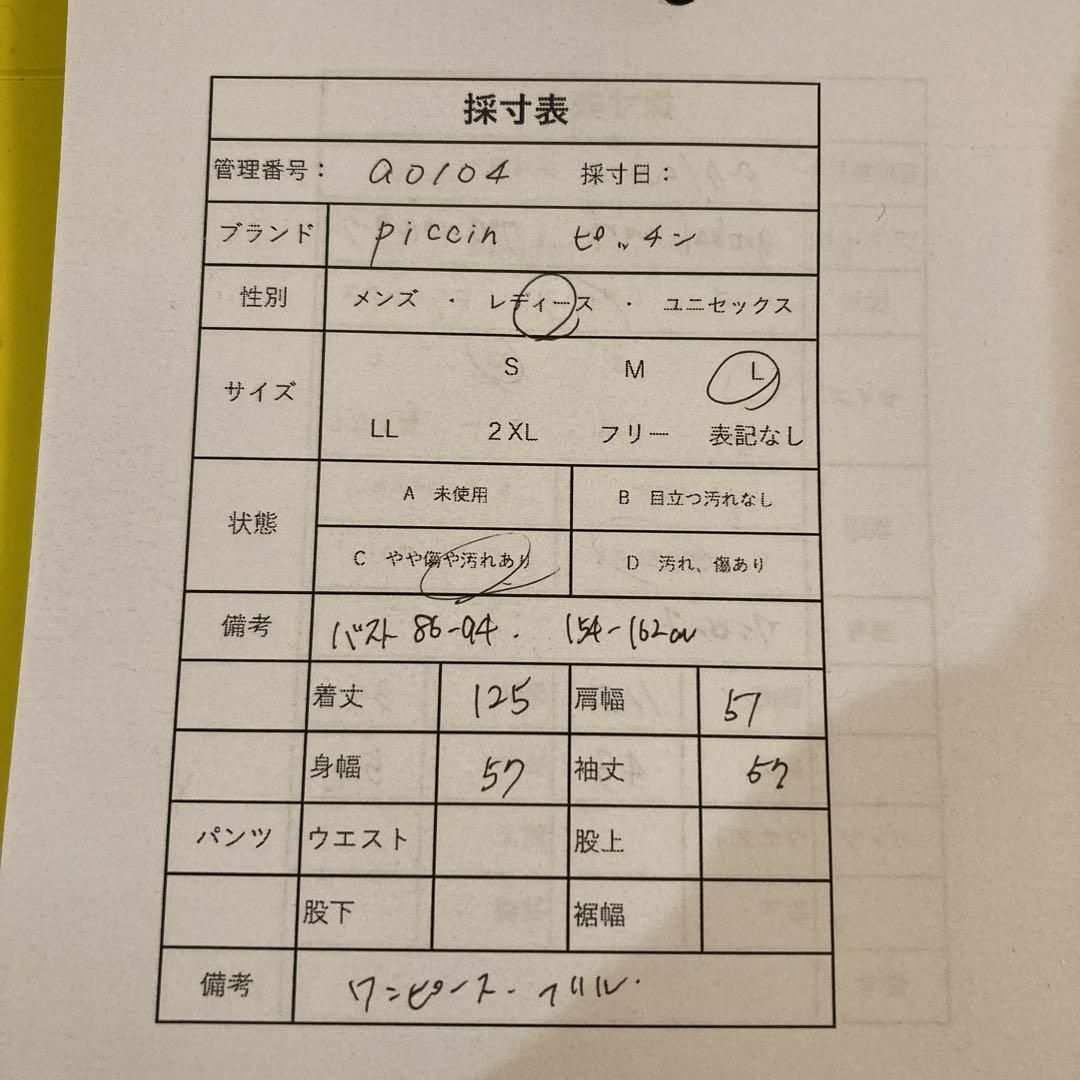 採寸表
管理番号： a0104 採寸日：
ブランド piccin ピッチン
性別 メンズ ・ レディース ・ ユニセックス
サイズ S M L
LL 2XL フリー 表記なし
状態 A 未使用 B 目立つ汚れなし
C やや傷や汚れあり D 汚れ、傷あり
備考 バスト 86-94. 154-162cm
着丈 125 肩幅 57
身幅 57 袖丈 57
パンツ ウエスト 股上
股下 裾幅
備考 ワンピース・